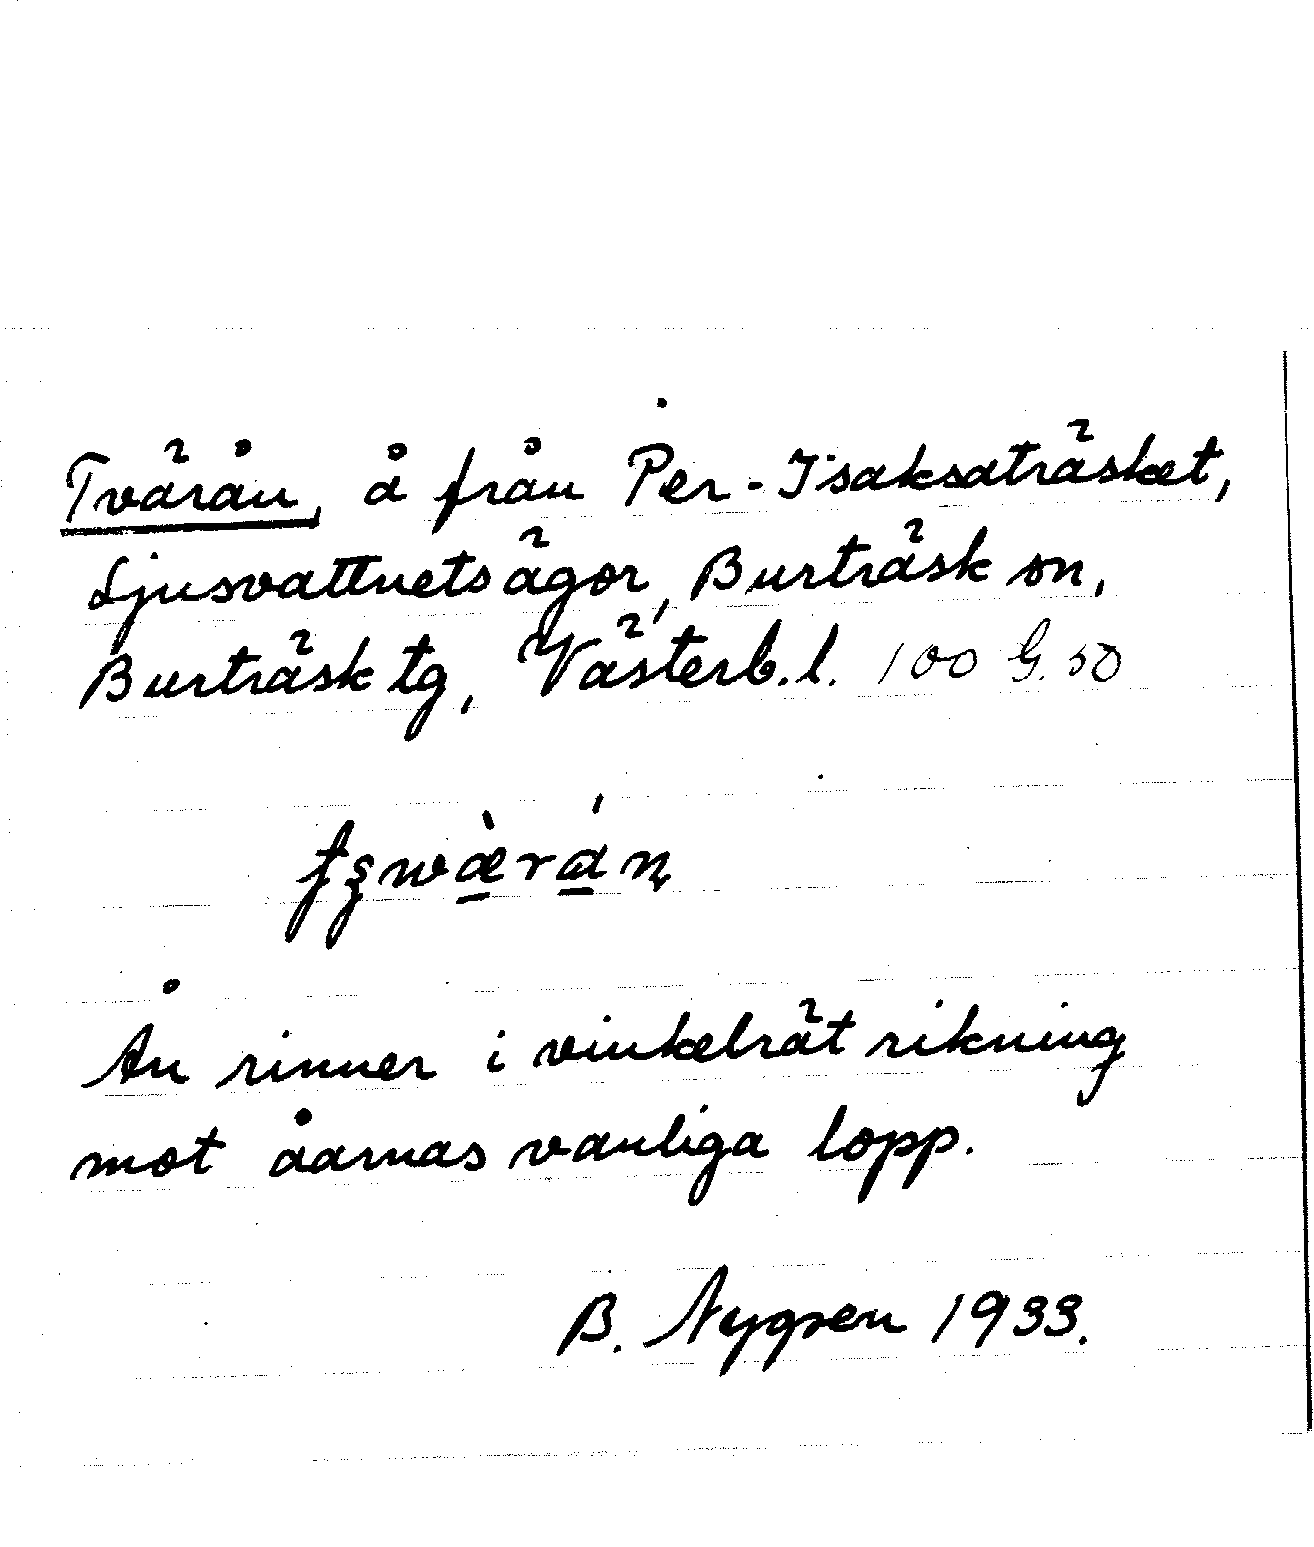 Tvärån, å från Per-Isaksaträsket,
Ljusvattnets ägor, Burträsk sn,
Burträsk tg, Västerb. l. 100 G. 50
Ån rinner i vinkelrät rikning
mot åarnas vanliga lopp.
B. Nygren 1933.